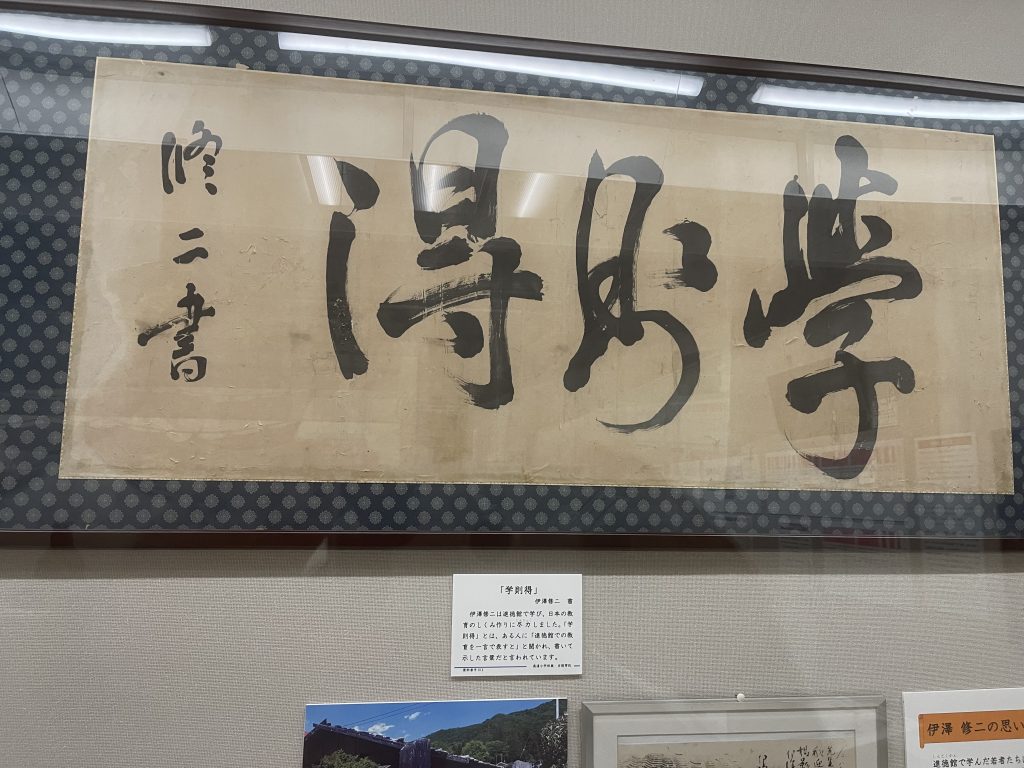 学則得
修二書
「学則得」
伊澤修二 書
伊澤修二は進徳館で学び、日本の教
育のしくみ作りに尽力しました。「学
則得」とは、ある人に「進徳館での教
育を一言で表すと」と聞かれ、書いて
示した言葉だと言われています。
伊澤 修二の思い
進徳館で学んだ若者たち